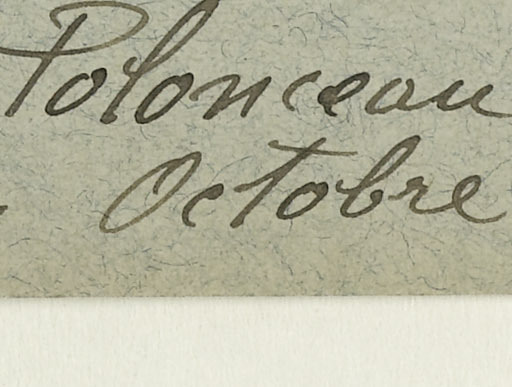 Polonceau
Octobre